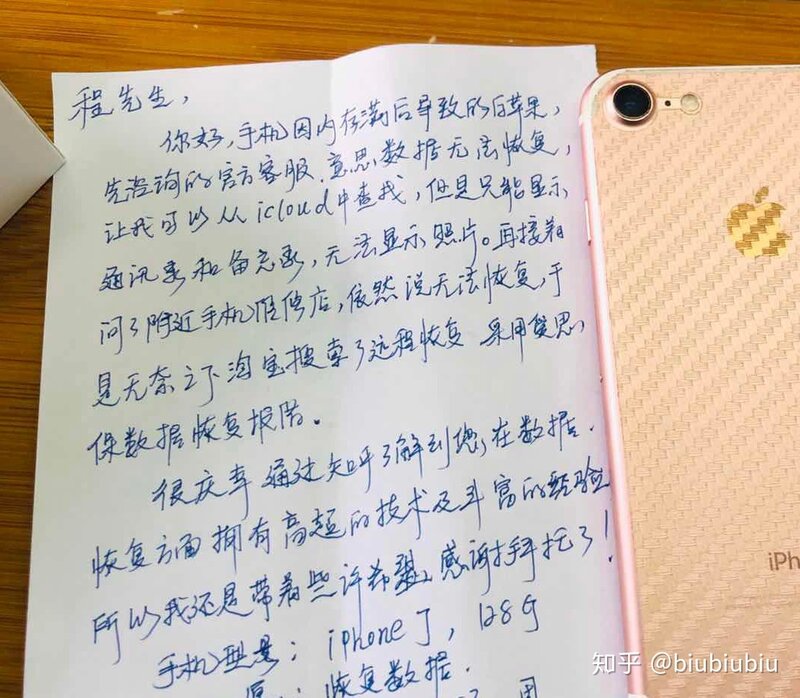 程先生，
你好，手机因内存满后导致的白苹果，
先咨询的官方客服，意思数据无法恢复，
让我可以从icloud中查找，但是只能显示
通讯录和备忘录，无法显示照片。再接着
问了附近手机维修店，依然说无法恢复，于
是无奈之下淘宝搜索了远程恢复 采用爱思
保数据恢复报错。
很庆幸通过知乎了解到您，在数据
恢复方面拥有高超的技术及丰富的经验
所以我还是带着些许希望，感谢拜托了！
手机型号：iphone 7，128G
恢复数据.
iPh
知乎 @biubiubiu